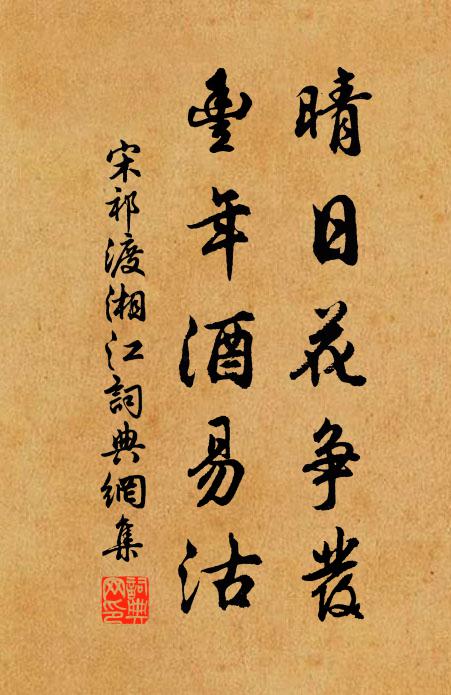 晴日花争發
豊年酒易沽
宋祁渡湘江詞典網集
詞典網印